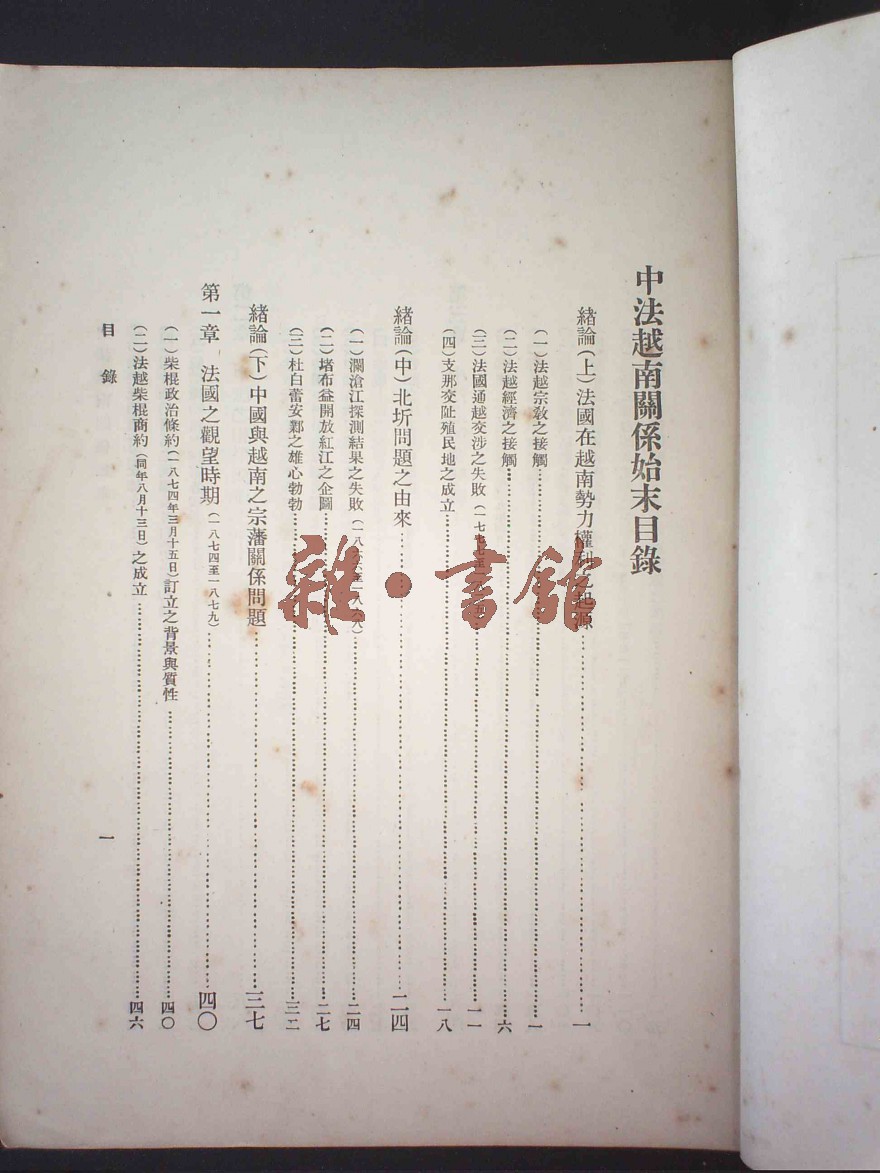 中法越南關係始末目錄
緒論(上)法國在越南勢力權利之起源……一
(一)法越宗敎之接觸……一
(二)法越經濟之接觸……六
(三)法國通越交涉之失敗……一一
(四)支那交阯殖民地之成立……一八
緒論(中)北圻問題之由來……二四
(一)瀾滄江探測結果之失敗(一八六六至一八六八)……二四
(二)堵布益開放紅江之企圖……二七
(三)杜白蕾安鄴之雄心勃勃……三二
緒論(下)中國與越南之宗藩關係問題……三七
第一章 法國之觀望時期(一八七四至一八七九)……四〇
(一)柴棍政治條約(一八七四年三月十五日)訂立之背景與質性……四〇
(二)法越柴棍商約(同年八月十三日)之成立……四六
目錄
一
雜·書館